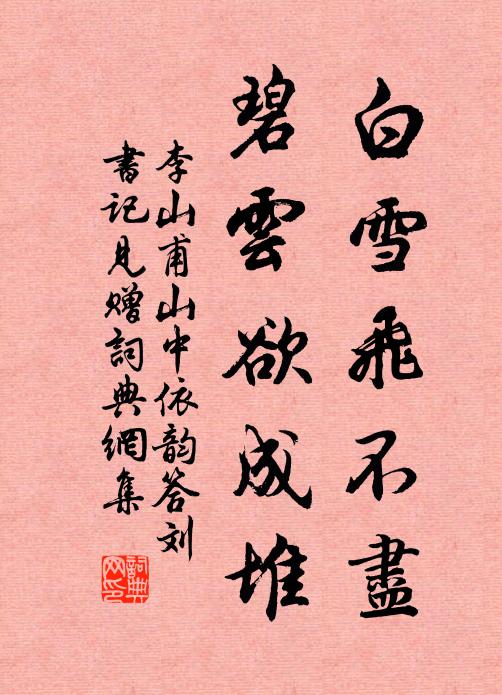 白雪飛不盡
碧雲欲成堆
李山甫山中依韵答刘
書记見赠詞典網集
詞典
网印